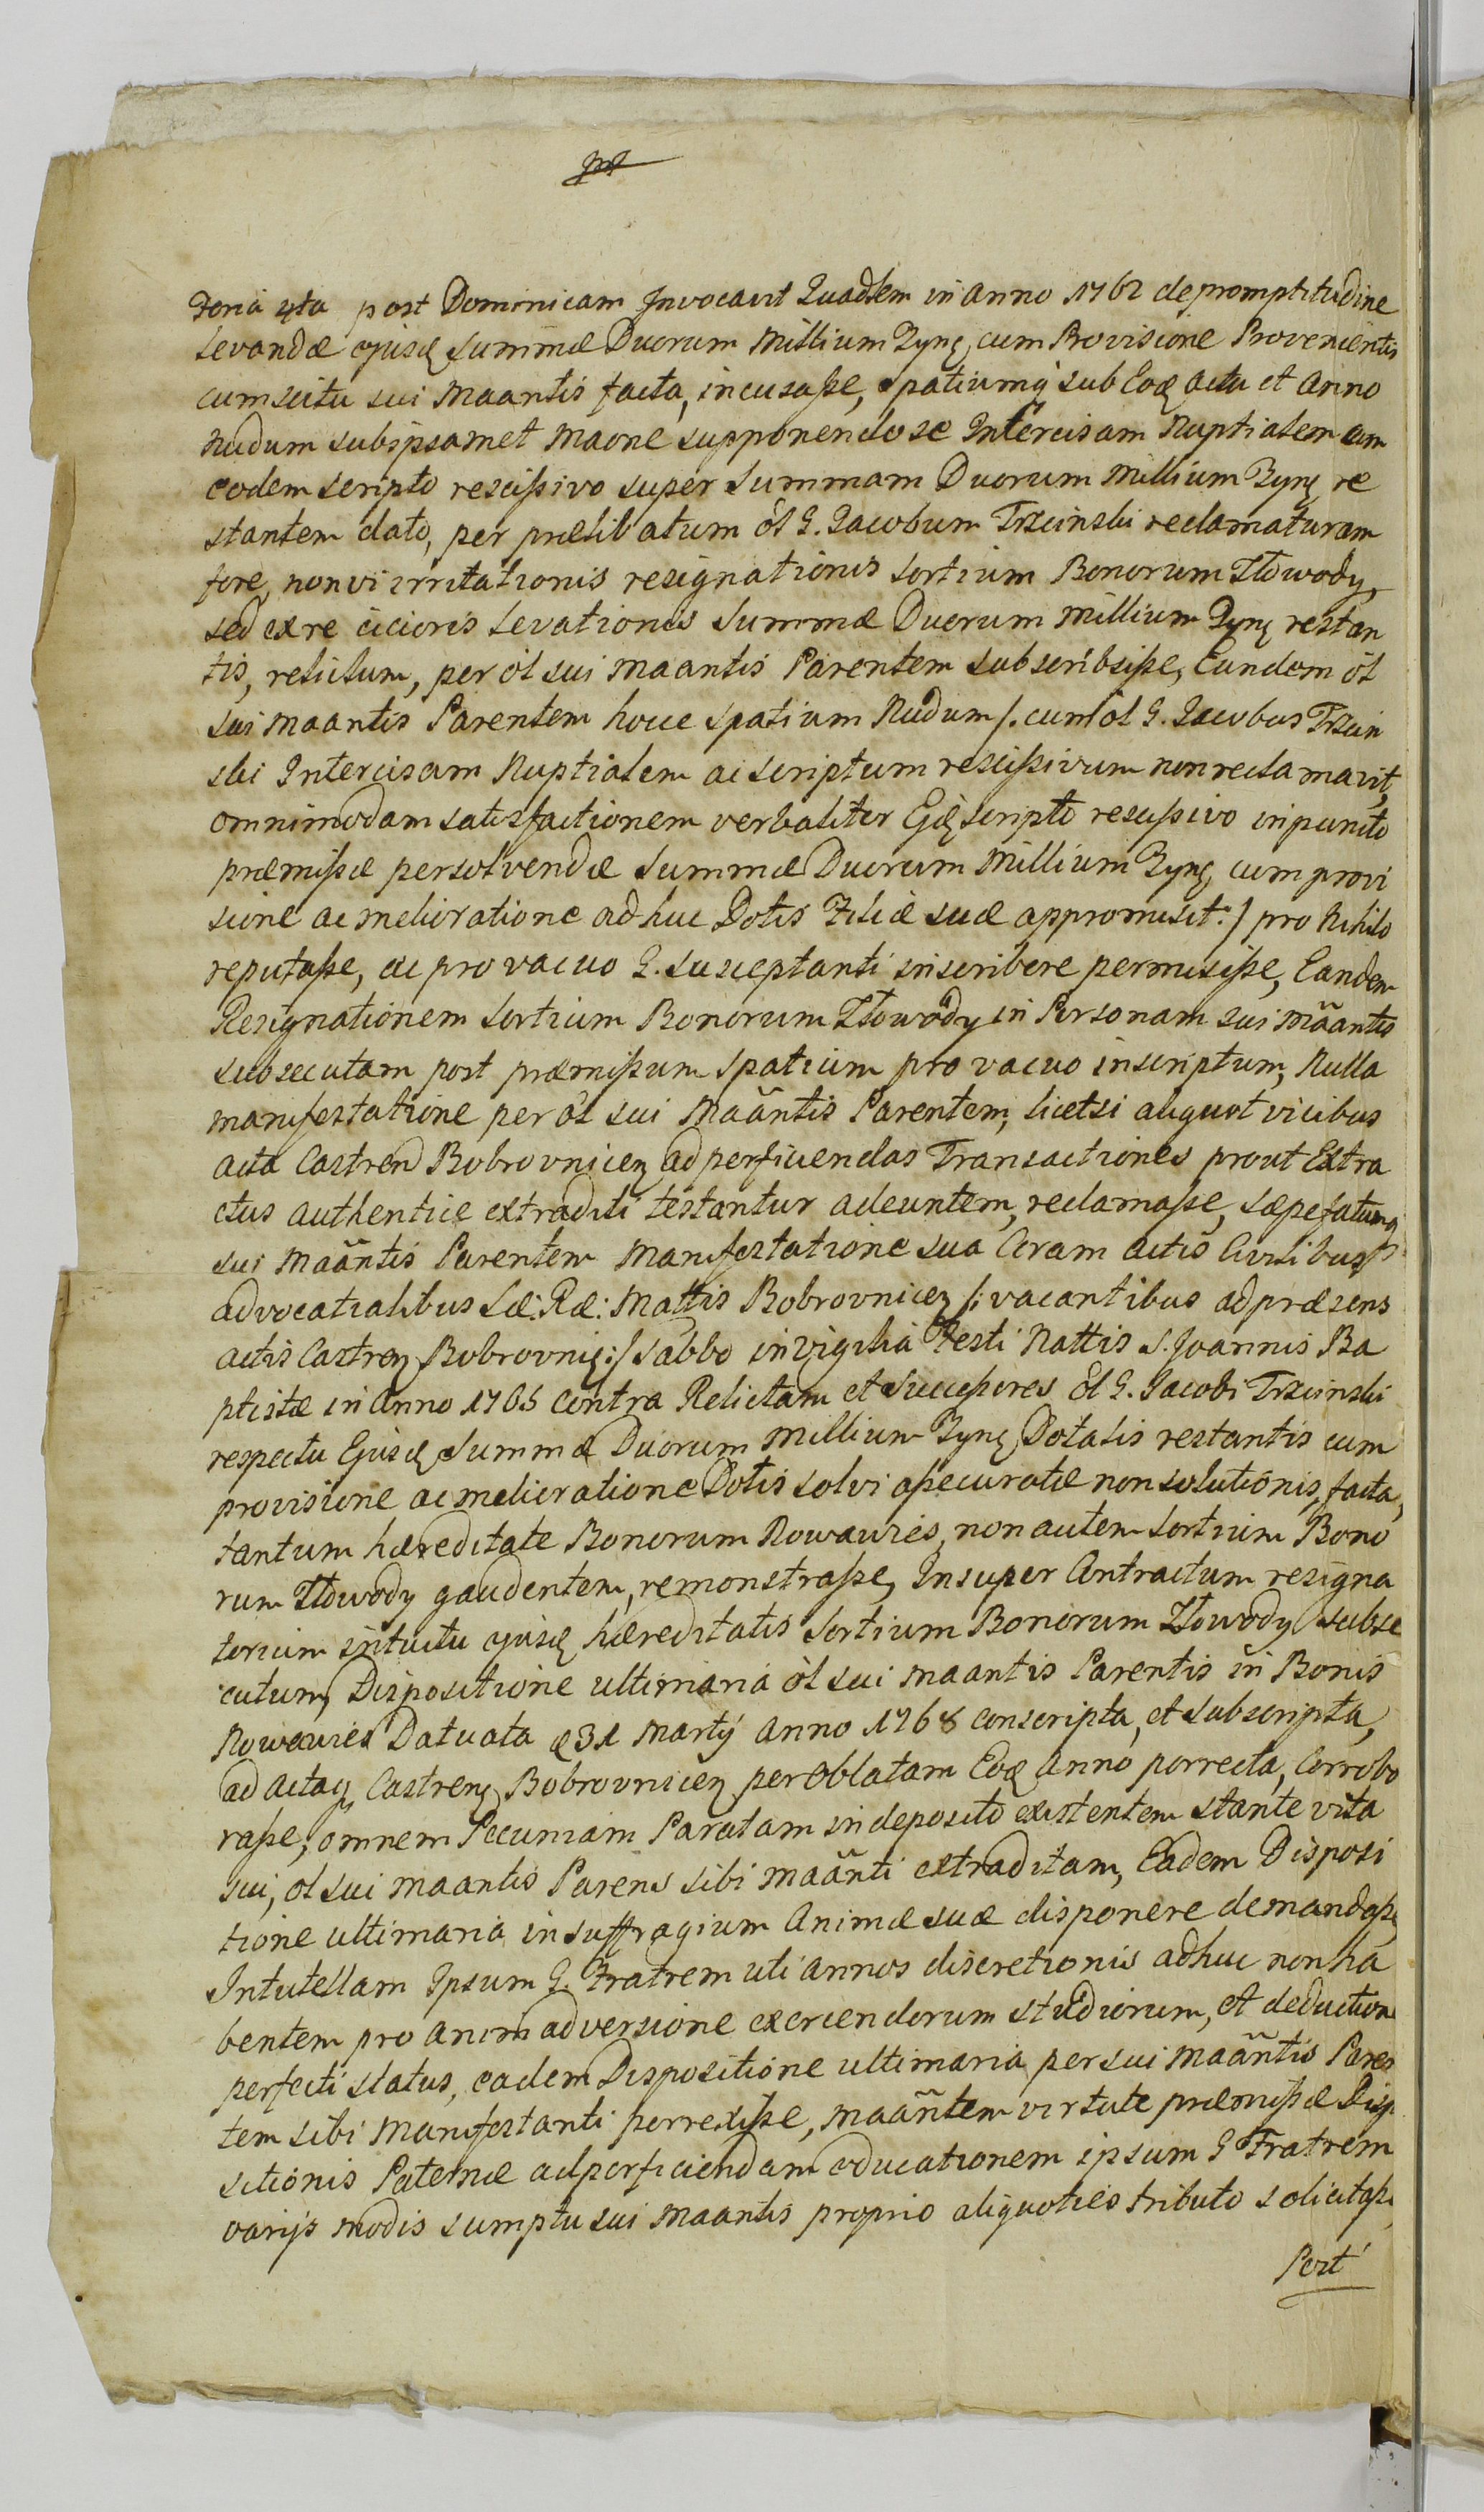 Feria 4ta post Dominicam Invocavit Quadlem in Anno 1762 de promptitudine
Levandæ ejusd Summæ Duorum Millium Zyng cum Provisione Provenientis
cum scitu sui Maantis facta, incusasse, spatiumq sub Eoq actu et Anno
Nudum sub ipsamet Maone supponendo se Intercisam Nuptialem cum
eodem scripto rescissivo super Summam Duorum Millium Zyng re
stantem dato, per prælibatum ol G. Jacobum Trzcinski reclamaturam
fore, non vi irritationis resignationis Sortium Bonorum Złowody,
sed ex re citioris Levationis Summæ Duorum Millium Zyng restan
tis, relictum, per ol sui Maantis Parentem subscribsisse, Eundem ol
sui Maantis Parentem hocce Spatium Nudum /. cum ol G. Jacobus Trzcin
ski Intercisam Nuptialem ac scriptum rescissivum non reclamavit,
omnimodam satisfactionem verbaliter Ejdę scripto rescissivo in puncto
præmissæ persolvendæ Summæ Duorum Millium Zyng, cum provi
sione ac melioratione adhuc Dotis Filiæ suæ appromisit. / pro Nihilo
reputasse, ac pro vacuo G. Susceptanti inscribere permisisse, Eandem
Resignationem Sortium Bonorum Złowody in Personam sui Mãantis
subsecutam post præmissum Spatium pro vacuo inscriptum, Nulla
manifestatione per ol sui Maãntis Parentem, licetsi aliquot vicibus
acta Castren Bobrovnicen ad perficiendas Transactiones prout Extra
ctus authentice extraditi testantur adeuntem, reclamasse, Sæpefatumq
sui Maãntis Parentem Manifestatione sua Coram actis Civilibus
advocatialibus Sæ: Ræ: Mattis Bobrovnicen /: vacantibus ad præsens
actis Castren Bobrovnic: / Sabbo in Vigilia Festi Nattis S. Joannis Ba
ptistæ in Anno 1765 contra Relictam et Successores Ol G. Jacobi Trzcinski
respectu Ejusd Summæ Duorum Millium Zyng Dotalis restantis cum
provisione ac melioratione Dotis solvi assecuratæ non solutionis, facta,
tantum hæreditate Bonorum Nowawies, non autem Sortium Bono
rum Złowody gaudentem, remonstrasse, Insuper Contractum resigna
torium intuitu ejusd hæreditatis Sortium Bonorum Złowody subse
cutum, Dispositione ultimaria ol sui Maantis Parentis in Bonis
Nowawies Datuata d 31 Martÿ Anno 1768 conscripta, et subscripta,
ad actaq Castren Bobrovnicen per Oblatam Eoq Anno porrecta, Corrobo
rasse, omnem Pecuniam Paratam in deposito existentem stante vita
sui, ol sui Maantis Parens sibi Maãnti extraditam, Eadem Disposi
tione ultimaria in suffragium Animæ suæ disponere demandasse
In tutellam Ipsum G. Fratrem uti annos discretionis adhuc non ha
bentem pro animadversione exercendorum studiorum, et deductione
perfecti status, eadem Dispositione ultimaria per sui Maãntis Paren
tem sibi Manifestanti porrexisse, Maãntem virtute præmissæ Dispo
sitionis Paternæ ad perficiendam educationem ipsum G Fratrem
varijs modis sumptu sui Maantis proprio aliquoties tributo solicitasse,
Post